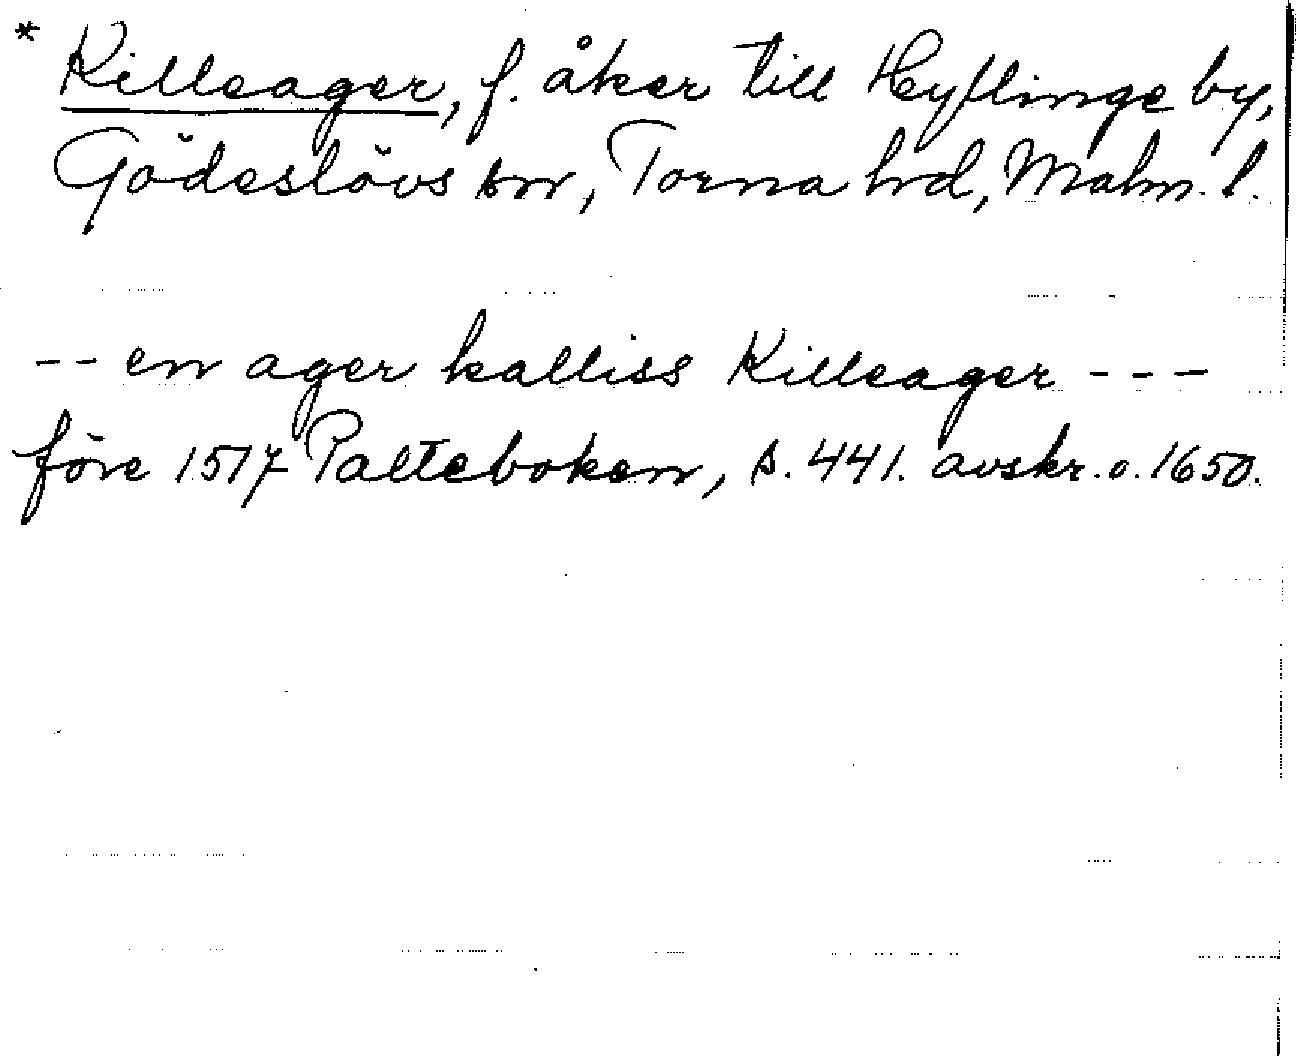 * Killeager, f. åker till Hyflinge by,
Gödeslövs sn, Torna hd, Malm. l.
-- en ager kalliss Killeager ---
före 1517 Palteboken, s. 441. avskr. o. 1650.